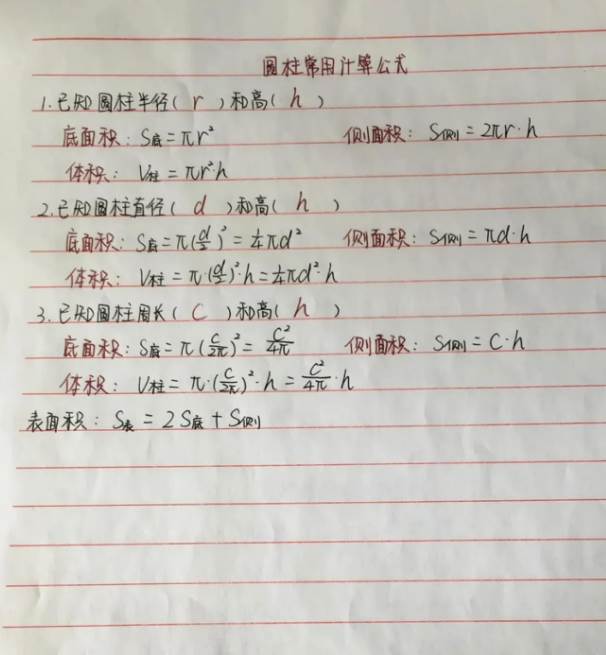 圆柱常用计算公式
1.已知圆柱半径( r )和高( h )
底面积: S底=πr² 侧面积: S侧=2πr·h
体积: V柱=πr²·h
2.已知圆柱直径( d )和高( h )
底面积: S底=π(d/2)²=1/4πd² 侧面积: S侧=πd·h
体积: V柱=π·(d/2)²·h=1/4πd²·h
3.已知圆柱周长( C )和高( h )
底面积: S底=π(C/2π)²=C²/4π 侧面积: S侧=C·h
体积: V柱=π·(C/2π)²·h=C²/4π·h
表面积: S表=2S底+S侧